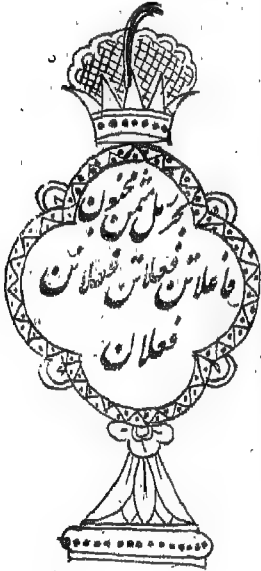 بحر رمل مثمن مخبون
فاعلاتن فعلاتن فعلاتن
فعلان